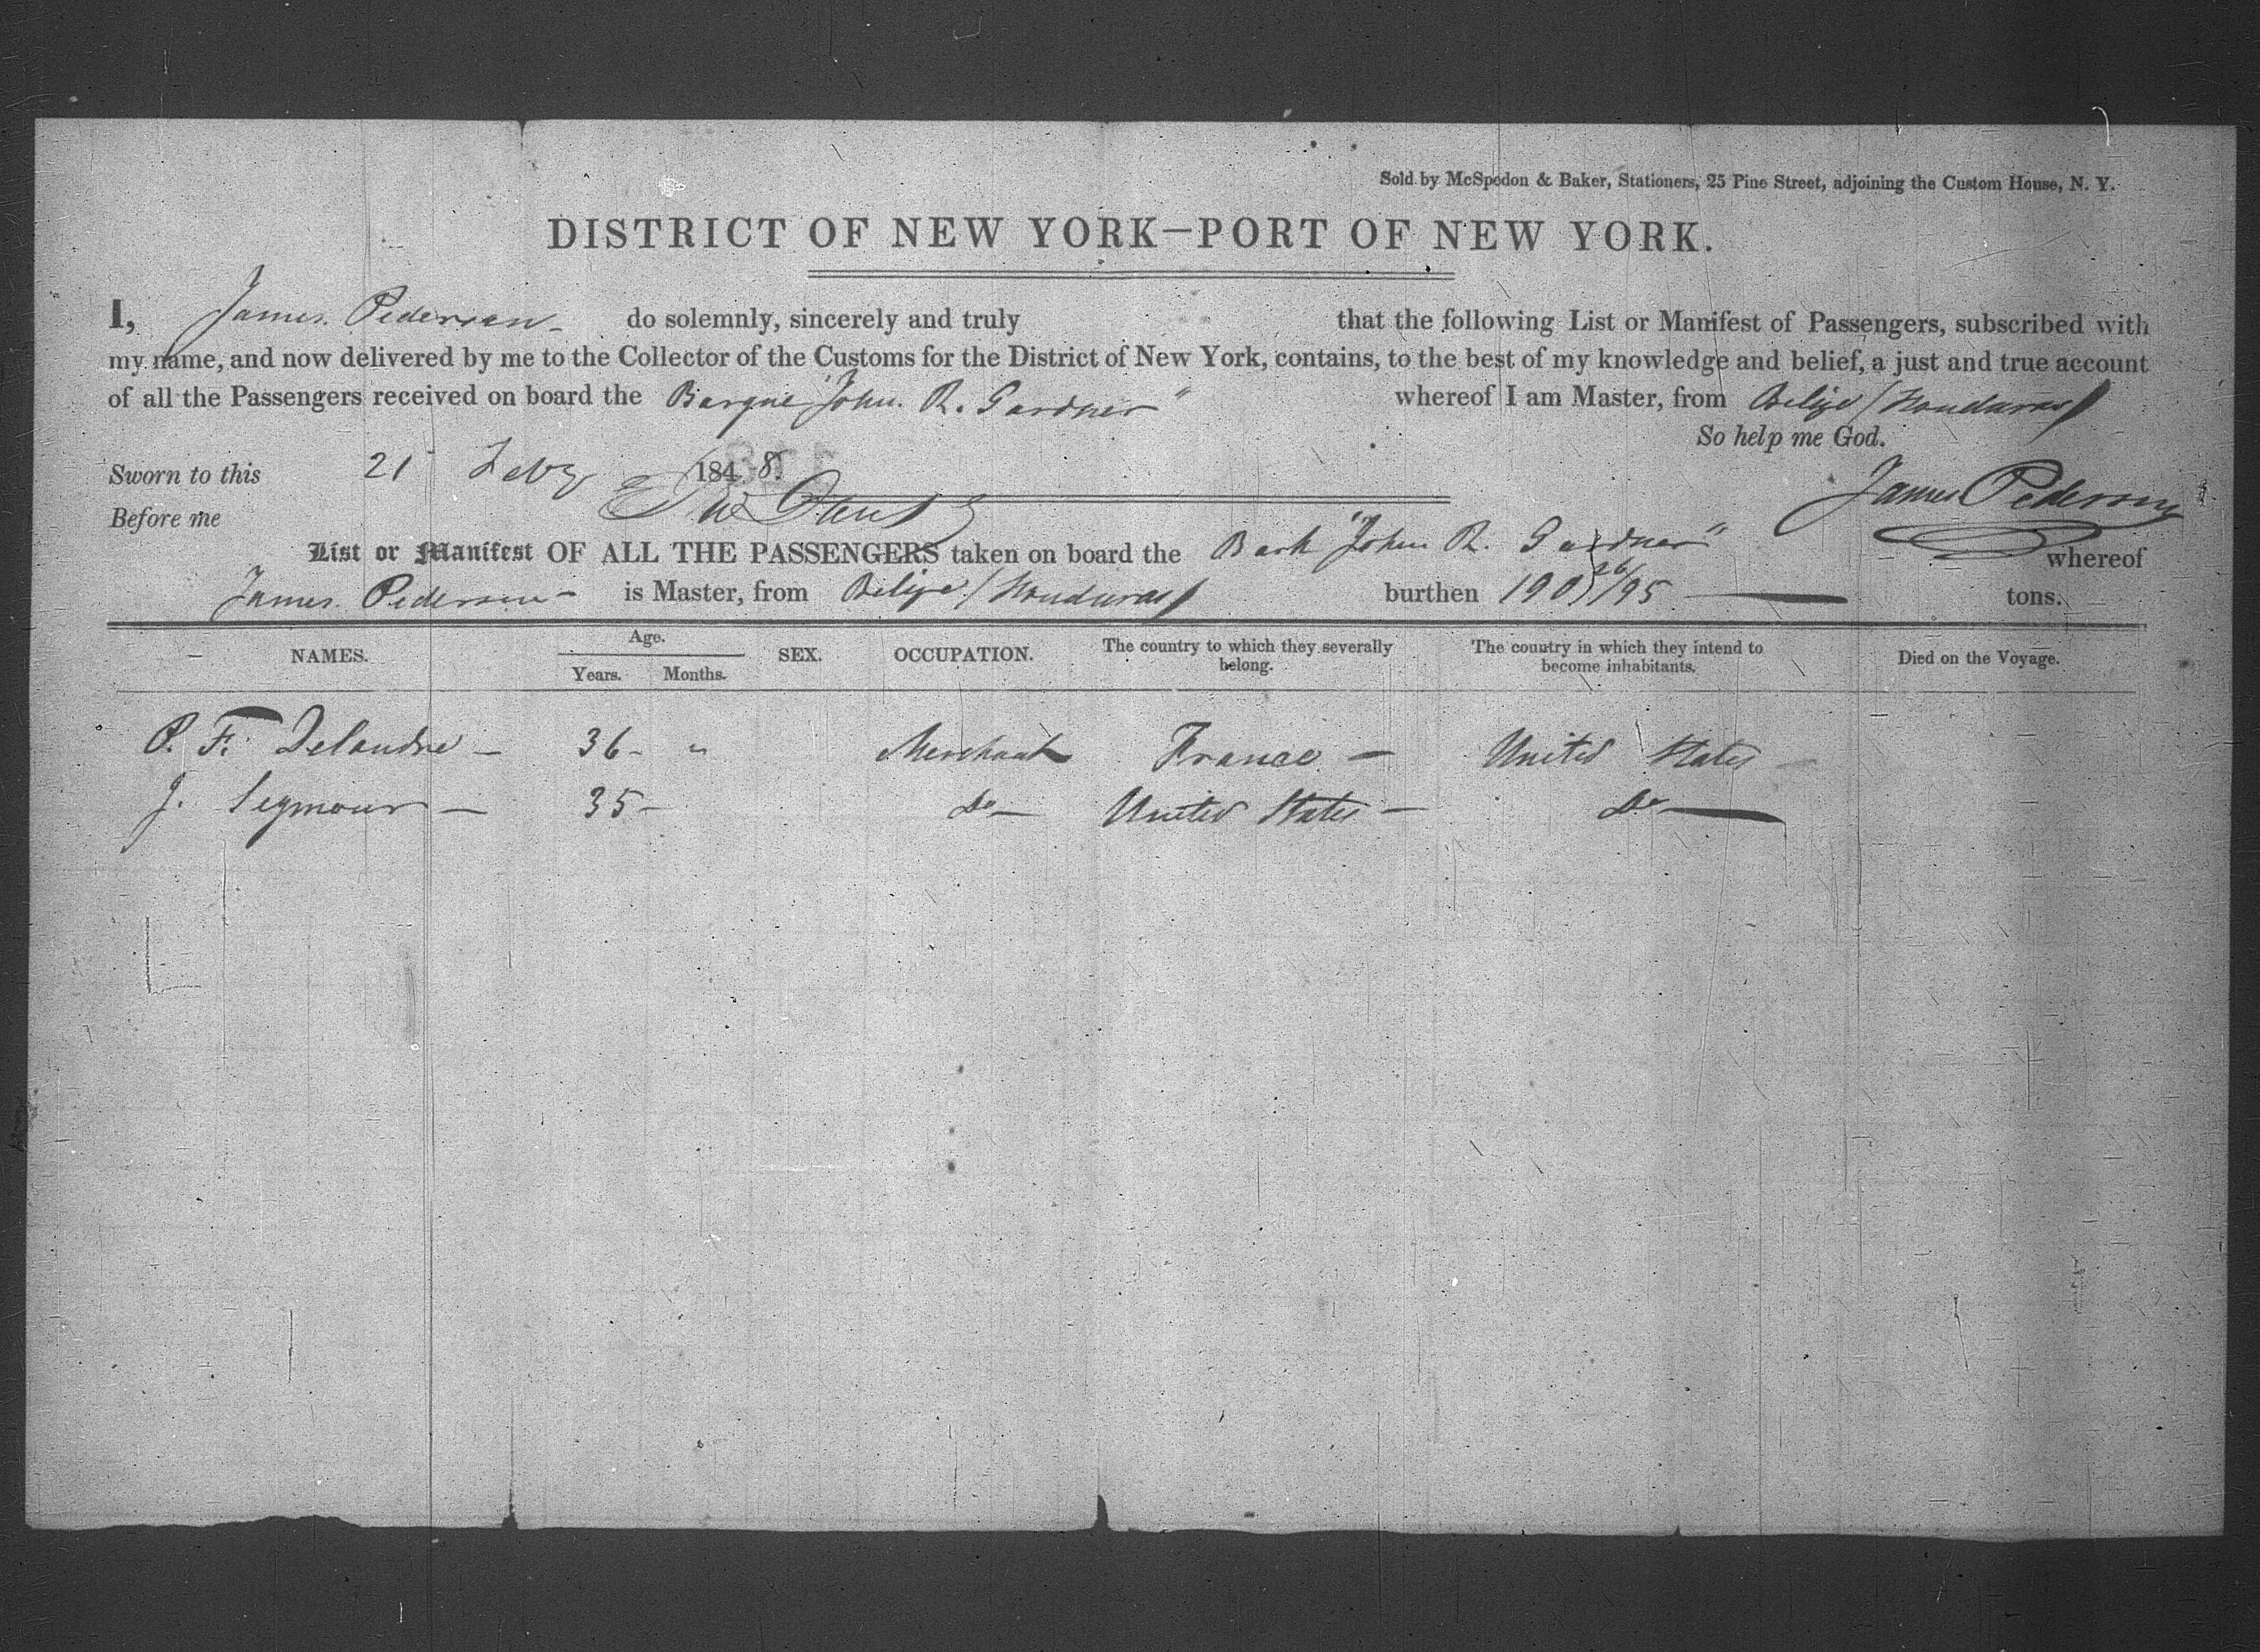 Sold by McSpedon & Baker, Stationers, 25 Pine Street, adjoining the Custom House, N. Y.
DISTRICT OF NEW YORK—PORT OF NEW YORK.
I, James Pedersen do solemnly, sincerely and truly that the following List or Manifest of Passengers, subscribed with
my name, and now delivered by me to the Collector of the Customs for the District of New York, contains, to the best of my knowledge and belief, a just and true account
of all the Passengers received on board the Barque "John R. Gardner" whereof I am Master, from Belize / Honduras /
So help me God.
Sworn to this 21 Feby 1848. James Pedersen
Before me
List or Manifest OF ALL THE PASSENGERS taken on board the Bark "John R. Gardner" whereof
James Pedersen is Master, from Belize / Honduras / burthen 190 26/95 tons.
NAMES. Age. SEX. OCCUPATION. The country to which they severally belong. The country in which they intend to become inhabitants. Died on the Voyage.
Years. Months.
P. F. Delandre — 36 - " Merchant France — United States —
J. Seymour — 35 — Do — United States — Do —